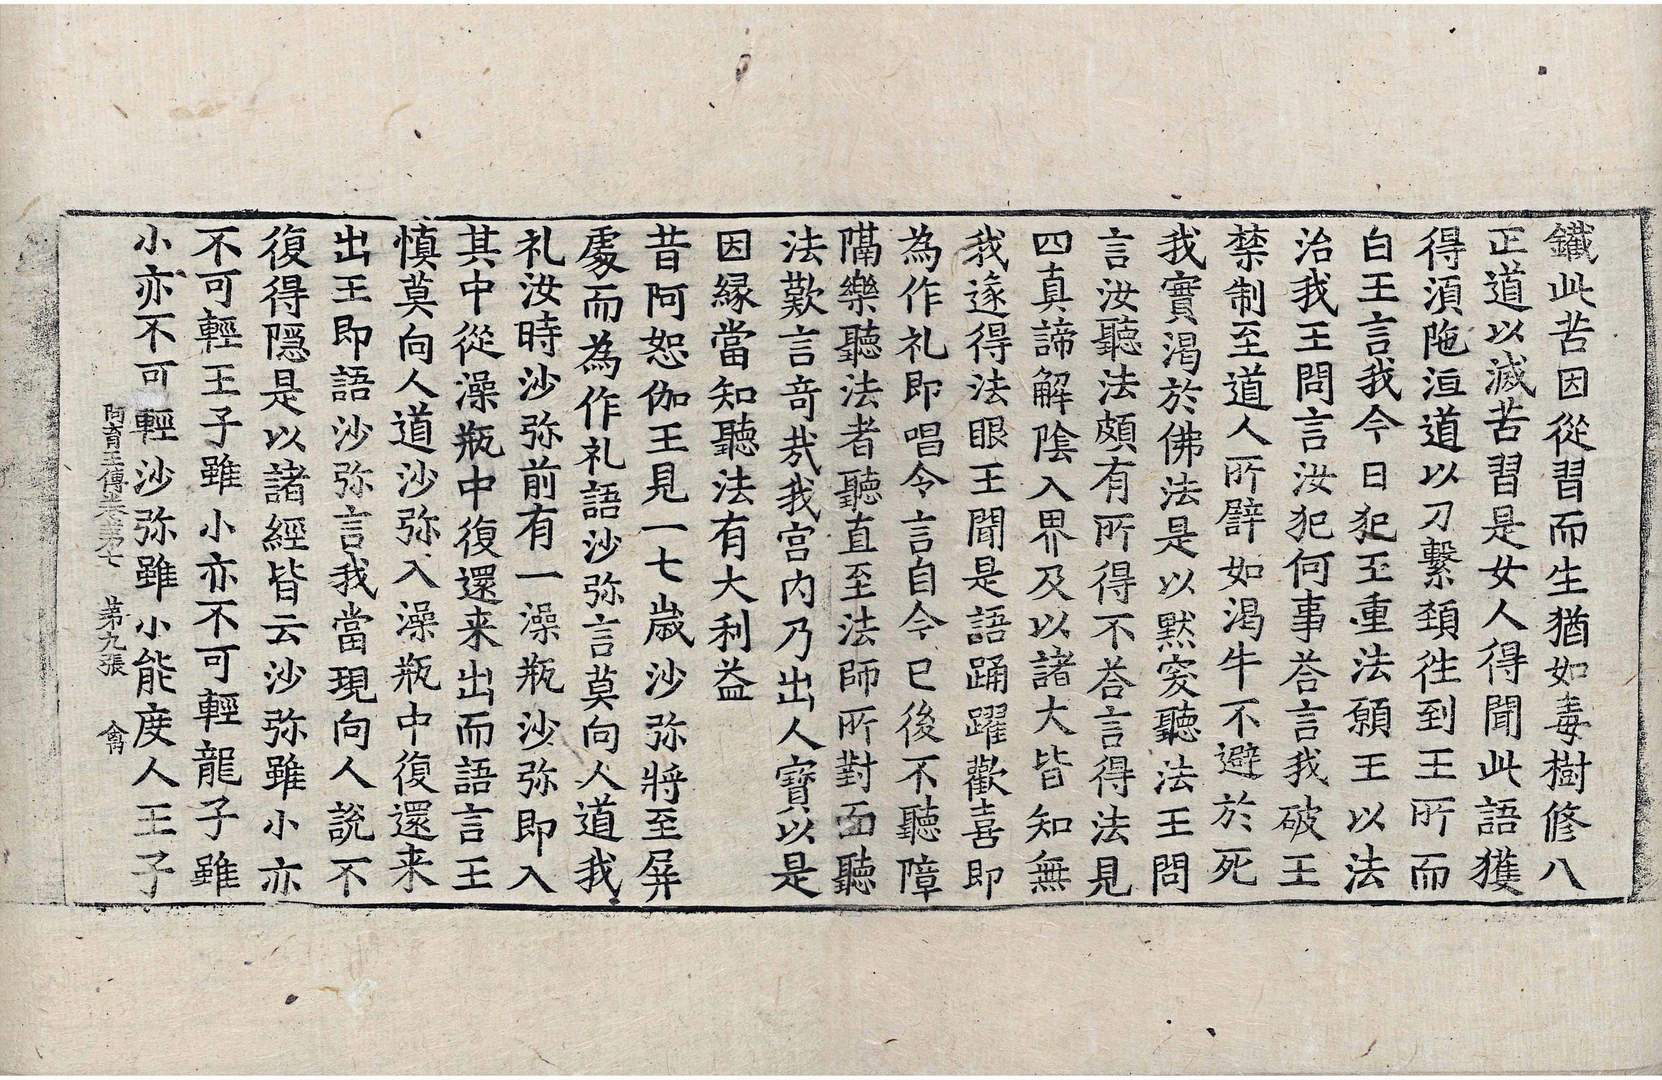 鐵此苦因從習而生猶如毒樹修八
正道以滅苦習是女人得聞此語獲
得湏陁洹道以刀繫頚徃到王所而
白王言我今日犯王重法願王以法
治我王問言汝犯何事荅言我破王
禁制至道人所譬如渴牛不避於死
我實渴於佛法是以黙突聽法王問
言汝聽法頗有所得不荅言得法見
四真諦解陰入界及以諸大皆知無
我遂得法眼王聞是語踊躍歡喜即
為作礼即唱令言自今已後不聽障
隔樂聽法者聽直至法師所對面聽
法歎言竒㢤我宫内乃出人寶以是
因縁當知聽法有大利益
昔阿恕伽王見一七歳沙弥將至屏
處而為作礼語沙弥言莫向人道我
礼汝時沙弥前有一澡瓶沙弥即入
其中從澡瓶中復還来出而語言王
慎莫向人道沙弥入澡瓶中復還来
出王即語沙弥言我當現向人說不
復得隱是以諸經皆云沙弥雖小亦
不可輕王子雖小亦不可輕龍子雖
小亦不可輕沙弥雖小能度人王子
阿育王傳卷第七 第九張 禽